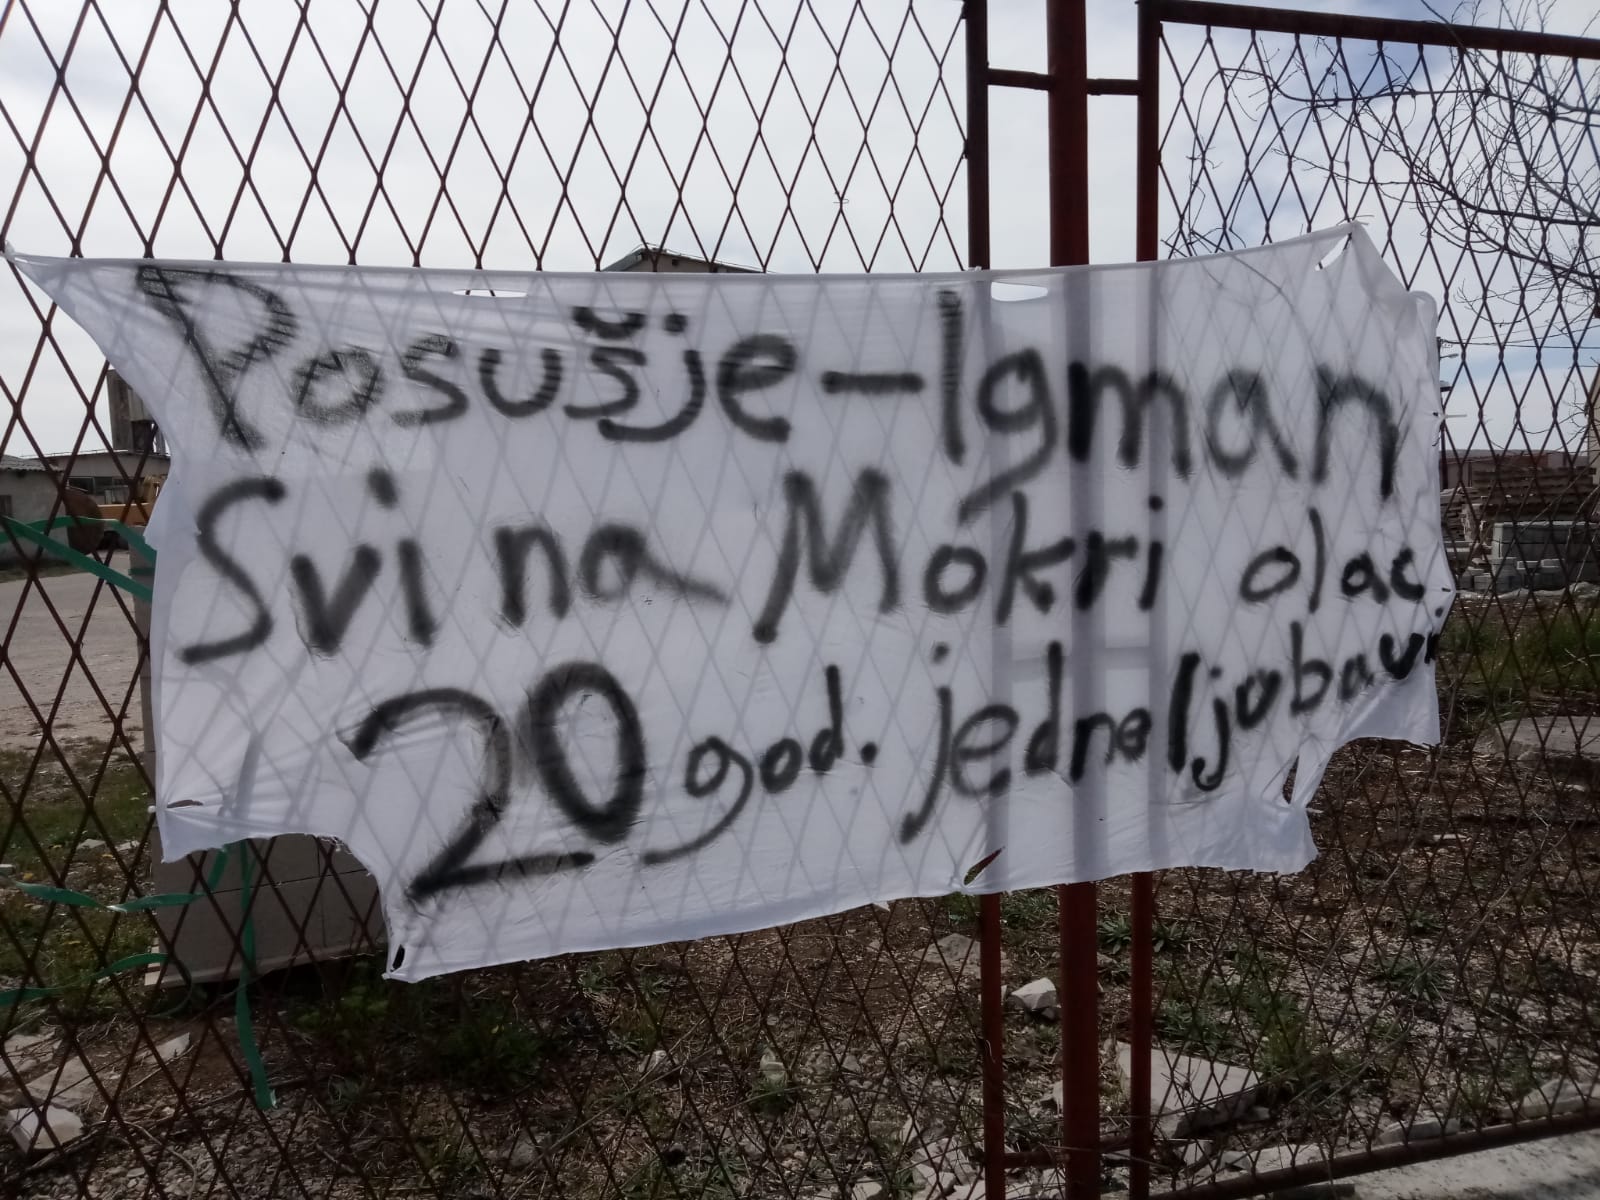 Posušje-Igman
Svi na Mokri olac
20 god. jedne ljubavi